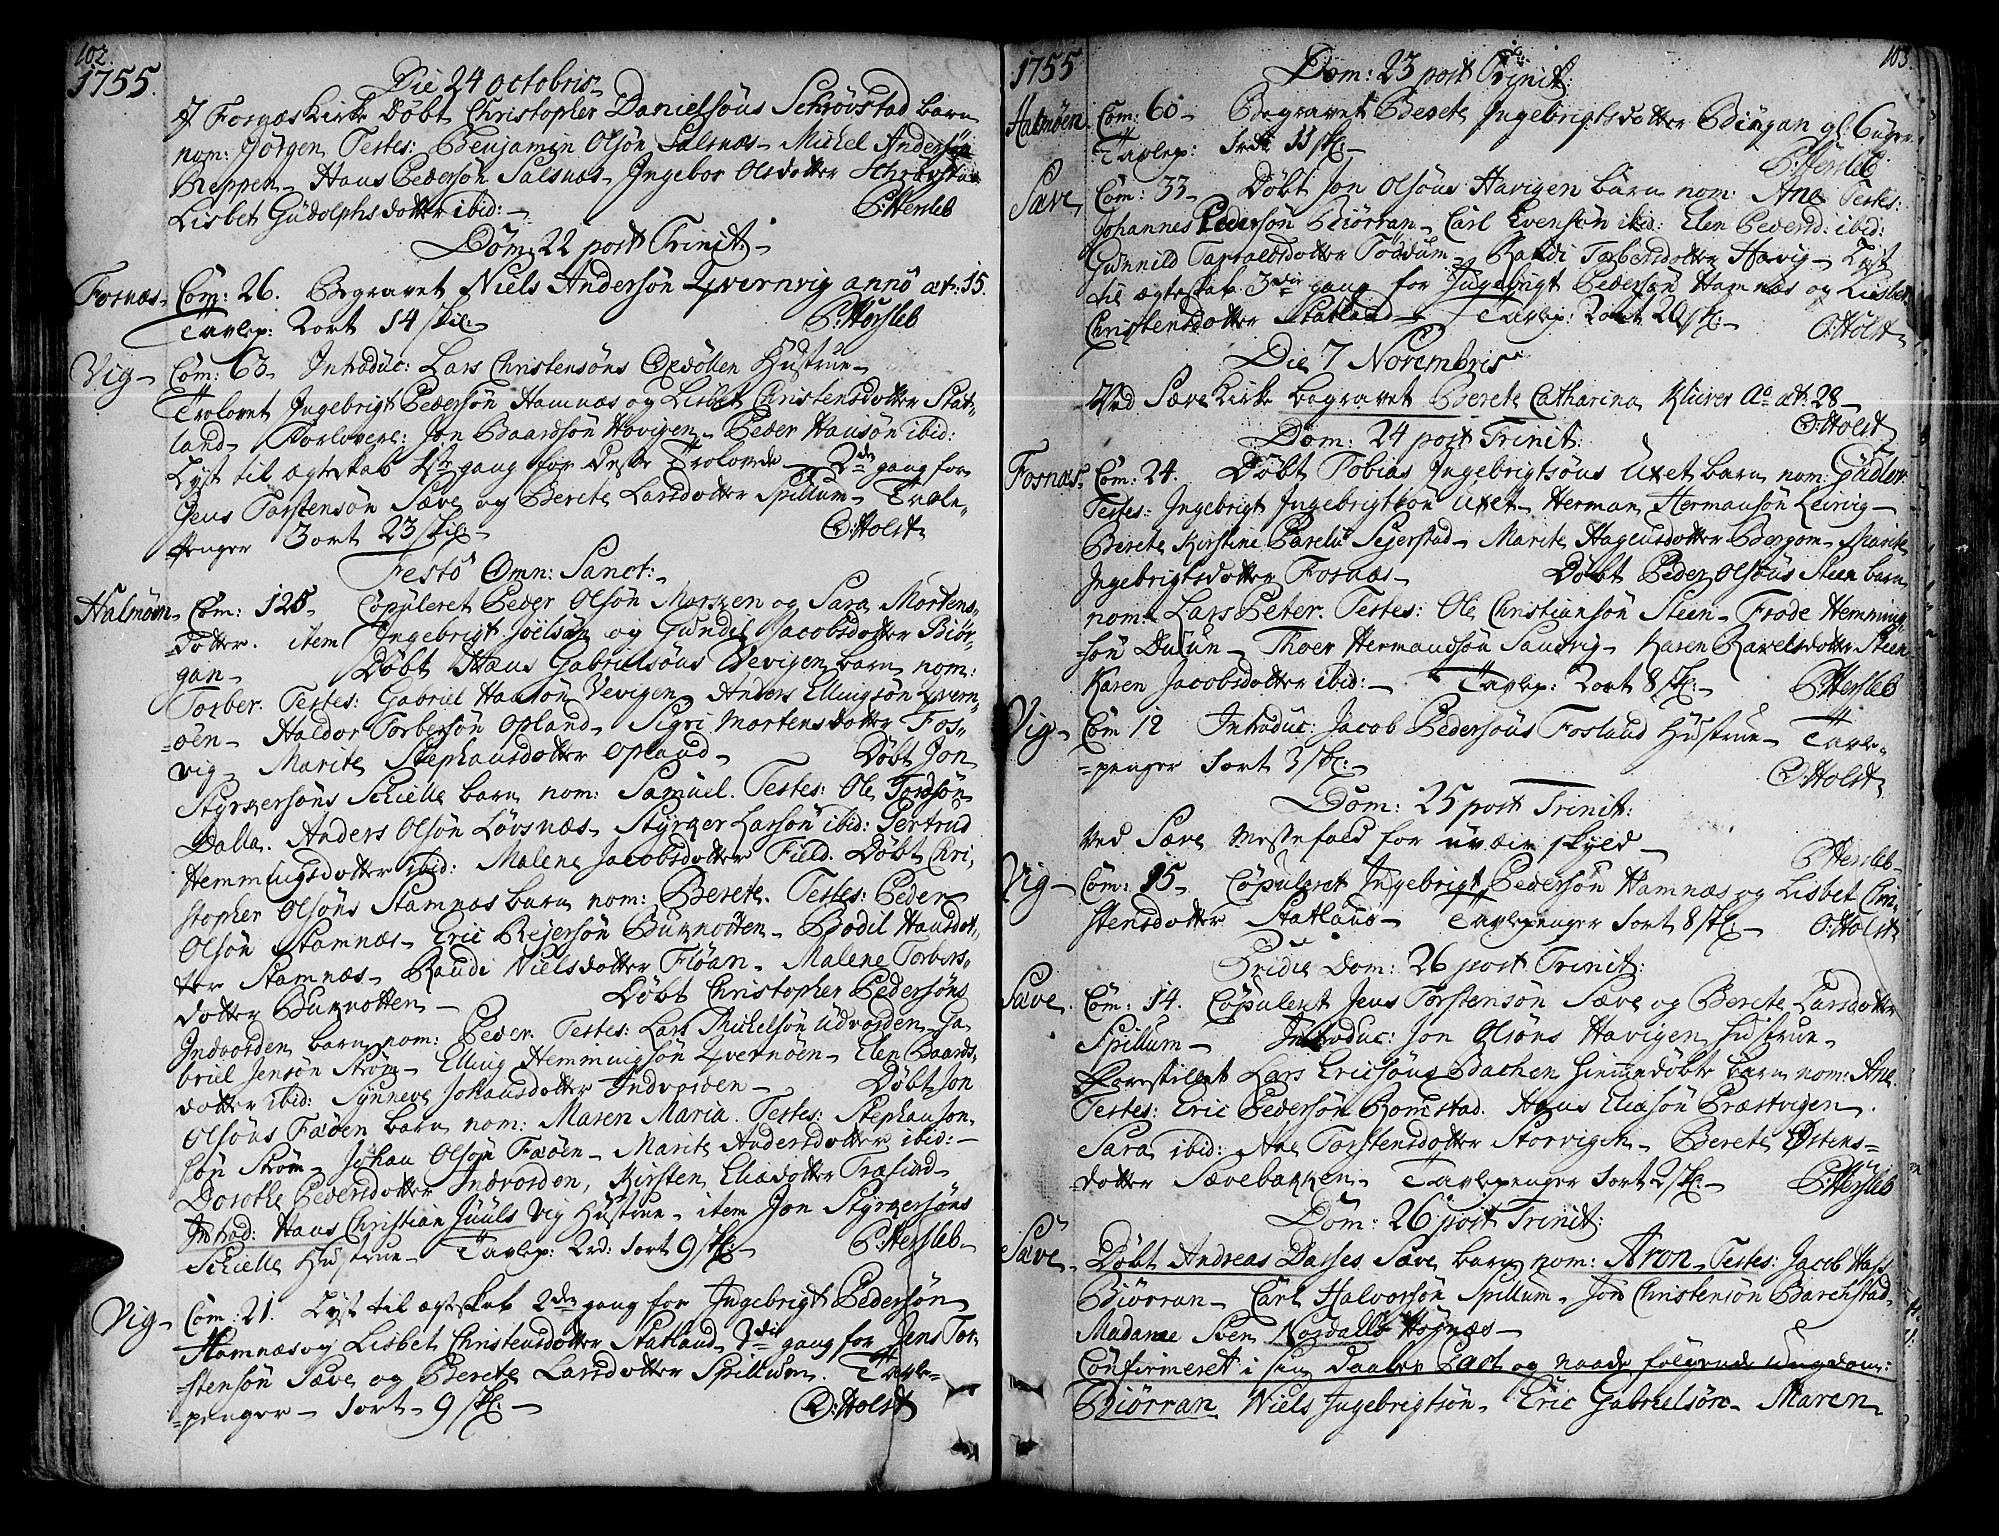 102.
1755.
Die 24 octobris
I Fosnæs Kirke Døbt Christopher Danielsøns Schrøvstad barn
nom: Jørgen Testes: Benjamin Olsøn Salsnæs. Michel Andersøn
Reppen. Hans Pedersøn Salsnæs. Ingebor Olsdotter Schrøvstad
Lisbet Gudolphsdotter ibid: P: Hersleb
Dom: 22 post Trinit:
Fosnæs. Com: 26. Begravet Niels Andersøn Qvernvig anno æt: 15.
Tavlep: 2 ort 14 skil: P: Hersleb
Vig Com: 63. Introduc: Lars Christensøns Hustrue
Trolovet Ingebrigt Pedersøn Hamnæs og Lisbet Christensdotter Stat-
land. Forlovere: Jon Baardsøn Havigen. Peder Hansøn ibid:
Lyst til ægteskab 1ste gang for disse Trolovede 2den gang for
Jens Torstensøn Sæve og Berete Larsdotter Spillum. Tavle-
penger 3 ort 23 skil. O: Holst
Festo Omn: Sanct:
Halmøen. Com: 125. Copuleret Peder Olsøn og Sara Mortens-
dotter. item Ingebrigt Joelsøn og Gundel Jacobsdotter Biør-
gan. Døbt Hans Gabrielsøns Vevigen barn nom:
Torber. Testes: Gabriel Hansøn Vevigen. Anders Ellingsøn Qvern-
øen. Haldor Torbersøn Opland. Sigri Mortensdotter Fos-
vig. Marite Stephansdotter Opland. Døbt Jon
Styrkersøns Schielle barn nom: Samuel. Testes: Ole Tordsøn
Dalla. Anders Olsøn Løvsnæs. Styrker Larsøn ibid: Gertrud
Hemmingsdotter ibid: Malene Jacobsdotter Field. Døbt Chri-
stopher Olsøns Stamnæs barn nom: Berete. Testes: Peder
Olsøn Stamnæs. Eric Rejersøn Burvotten. Bodil Hansdot-
ter Stamnæs. Randi Nielsdotter Fløan. Malene Torbers-
dotter Burvotten. Døbt Christopher Pedersøns
Indvorden barn nom: Peder. Testes: Lars Michelsøn Udvorden. Ga-
briel Jensøn Strøm. Elling Hemmingsøn Qvernøen. Elen Baards-
dotter ibid: Synneve Johansdotter Indvorden. Døbt Jon
Olsøns Faøen barn nom: Maren Maria. Testes: Stephan Jon-
søn Strøm. Johan Olsøn Faøen. Marite Andersdotter ibid:
Dorothe Pedersdotter Indvorden, Kirsten Eliædotter
Introd: Hans Christian Juuls Vig Hustrue. item Jon Styrkersøns
Schielle Hustrue. Tavlep: 2 rd: 1 ort 9 sk: P: Hersleb
Vig Com: 21. Lyst til ægteskab 2den gang for Ingebrigt Pedersøn
Hamnæs og Lisbet Christensdotter Statland. 3die gang for Jens Tor-
stensøn Sæve og Berete Larsdotter Spillum. Tavle-
penger 1 ort 9 sk: O: Holst
103.
1755 Dom: 23 post Trinit:
Halmøen. Com: 60. Begravet Berete Ingebrigtsdotter Biørgan gl: 6 uger.
Tavlep: 1 rdl: 11 sk: P: Hersleb
Sæve Com: 33. Døbt Jon Olsøns Havigen barn nom: Ane Testes:
Johannes Pedersøn Biørran. Carl Evensøn ibid: Elen Pedersd: ibid:
Gunnild Tarraldsdotter Fossum. Randi Torbersdotter Havig. Lyst
til ægteskab 3die gang for Ingebrigt Pedersøn Hamnæs og Lisbet
Christensdotter Statland. Tavlep: 2 ort 20 sk: O: Holst
Die 7 Novembris
Ved Sæve Kirke begravet Berete Catharina Kliver Ao æt: 28
O: Holst
Dom: 24 post Trinit:
Fosnæs. Com: 24. Døbt Tobias Ingebrigtsøns Uxet barn nom: Gudlov.
Testes: Ingebrigt Ingebrigtsøn Uxet. Herman Hermansøn Leirvig
Berete Kirstine Parelii Sejerstad. Marite Hagensdotter Bergom. Marite
Ingebrigtsdotter Fosnæs. Døbt Peder Olsøns Steen barn
nom: Lars Peter. Testes: Ole Christiansøn Steen. Frode Hemming-
søn Duun. Thoer Hermandsøn Sandvig. Karen Pavelsdotter Steen
Karen Jacobsdotter ibid: Tavlep: 2 ort 8 sk: P: Hersleb
Vig Com 12 Introduc: Jacob Pedersøns Fosland Hustrue. Tavle-
penger 1 ort 3 sk: O: Holst
Dom: 25 post Trinit:
Ved Sæve Messefald for uveir skyld P: Hersleb
Vig Com: 15. Copuleret Ingebrigt Pedersøn Hamnæs og Lisbet Chri-
stensdotter Statland. Tavlepenger 1 ort 8 sk: O: Holst
Pridie Dom: 26 post Trinit:
Sæve. Com: 14. Copuleret Jens Torstensøn Sæve og Berete Larsdotter
Spillum. Introduc: Jon Olsøns Havigen Hustrue
Forestillet Lars Ericsøns Bachen hiemmedøbte barn nom: Ane.
Testes: Eric Pedersøn Romstad. Hans Eliæsøn Præstvigen.
Sara ibid: Ane Torstensdotter Storvigen. Berete Østens-
dotter Sævebakken. Tavlepenger 1 ort 2 sk: P: Hersleb
Dom: 26 post Trinit:
Sæve. Døbt Andreas Dasses Sæve barn nom: Aron. Testes: Jacob Hass
Biørran. Carl Halvorsøn Spillum. Jon Christensøn Barchstad.
Madame Sven Nordalls Højnæs
Confirmeret i sin Daabes Pact og naade følgende Ungdom:
Biørran Niels Ingebrigtsøn. Eric Gabrielsøn. Maren